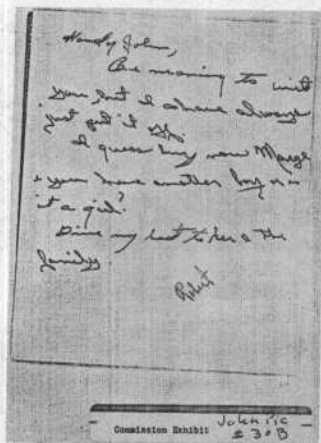 Howdy John,
Been meaning to write
you but I have always
just put it off.
I guess by now Marge
& you have another boy or is
it a girl?
Give my best to her & the
family.
Robert
Commission Exhibit
John Pic
Ex 30 B